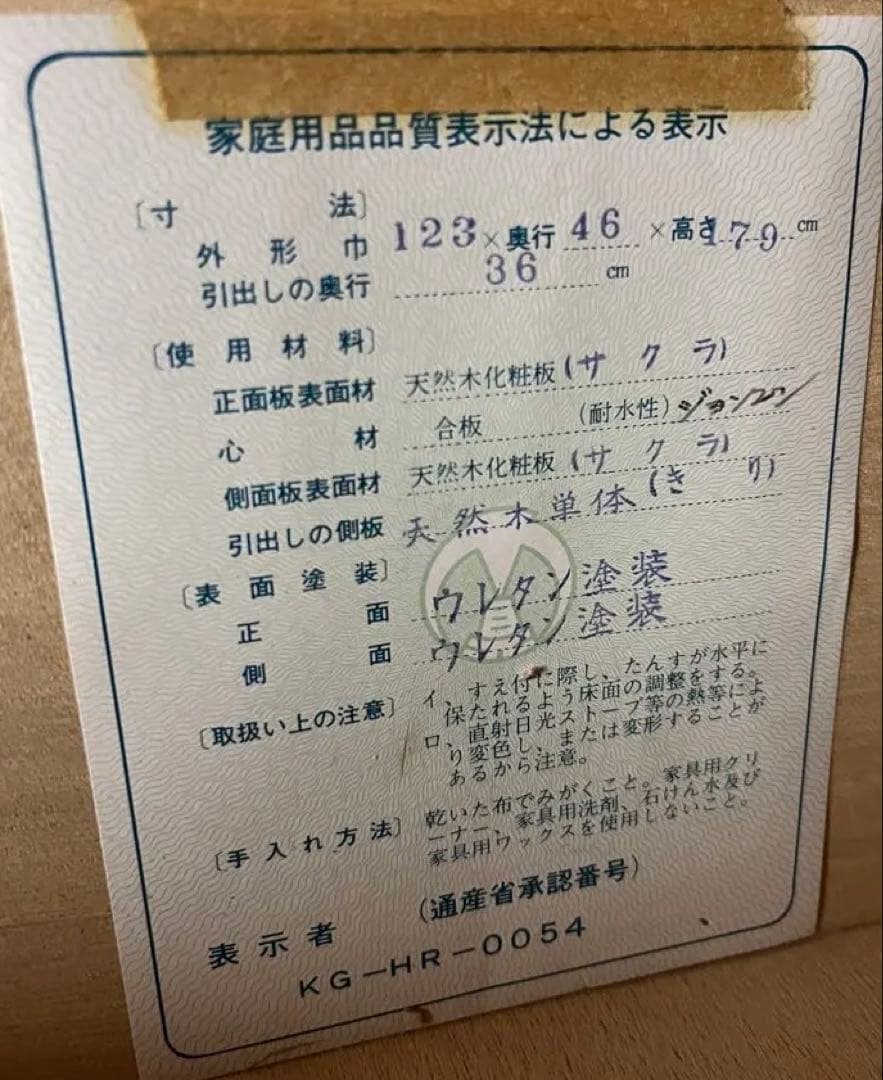 家庭用品品質表示法による表示
〔寸法〕
外形巾 123×奥行 46 ×高さ179cm
引出しの奥行 36 cm
〔使用材料〕
正面板表面材 天然木化粧板(サクラ)
心材 合板 (耐水性)
側面板表面材 天然木化粧板(サクラ)
引出しの側板 天然木単体(きり)
〔表面塗装〕
正面 ウレタン塗装
側面 ウレタン塗装
〔取扱い上の注意〕
イ、すえ付に際し、たんすが水平に
保たれるよう床面の調整をする。
ロ、直射日光ストーブ等の熱等によ
り変色し、または変形することが
あるから注意。
〔手入れ方法〕
乾いた布でみがくこと。家具用クリ
ーナー、家具用洗剤、石けん水及び
家具用ワックスを使用しないこと。
表示者 (通産省承認番号)
KG-HR-0054